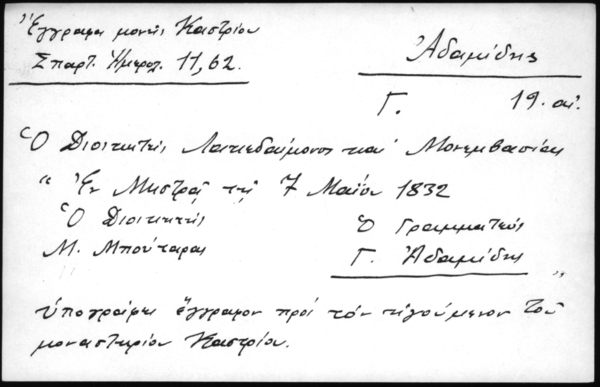 Ἔγγραφα μονῆς Καστρίου
Σπαρτ. Ἡμερολ. 11, 62.
Ἀδαμίδης
Γ. 19. αἰ.
Ὁ Διοικητὴς Λακεδαίμονος καὶ Μονεμβασίας
" Ἐν Μυστρᾷ τῇ 7 Μαΐου 1832
Ὁ Διοικητὴς Ὁ Γραμματεὺς
Μ. Μπούταρας Γ. Ἀδαμίδης "
ὑπογράφει ἔγγραφον πρὸς τὸν ἡγούμενον τοῦ
μοναστηρίου Καστρίου.